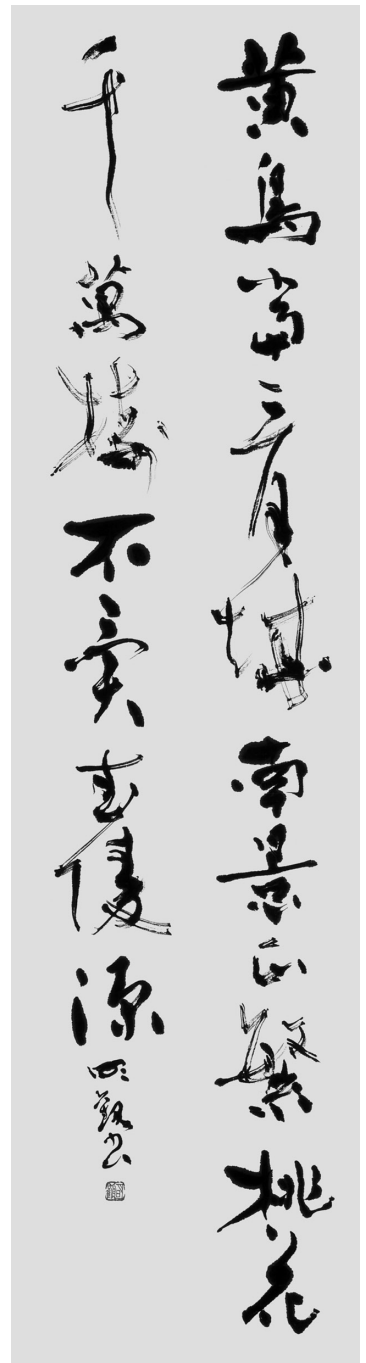 黄鳥當三月城南景正繁桃花
千萬樹不武陵源
書